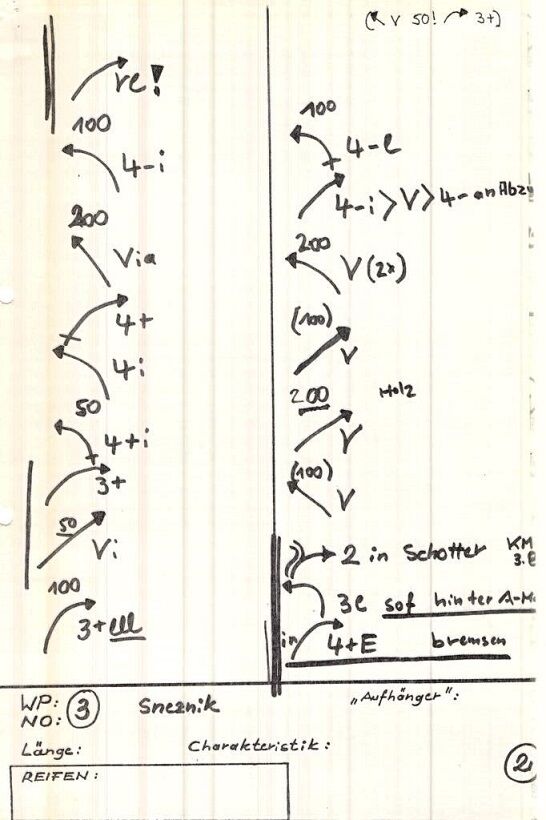 (V 50! 3+)
re!
100
4-i
200
Via
4+
4i
50
4+i
3+
50
Vi
100
3+lll
100
4-e
4-i>V>4-an Abz
200
V(2x)
(100)
V
200 Holz
V
(100)
V
2 in Schotter KM
3.
3e sof hinter A-M
in 4+E bremsen
WP: 3 Sneznik
NO:
"Aufhänger":
Länge: Charakteristik:
2
REIFEN: